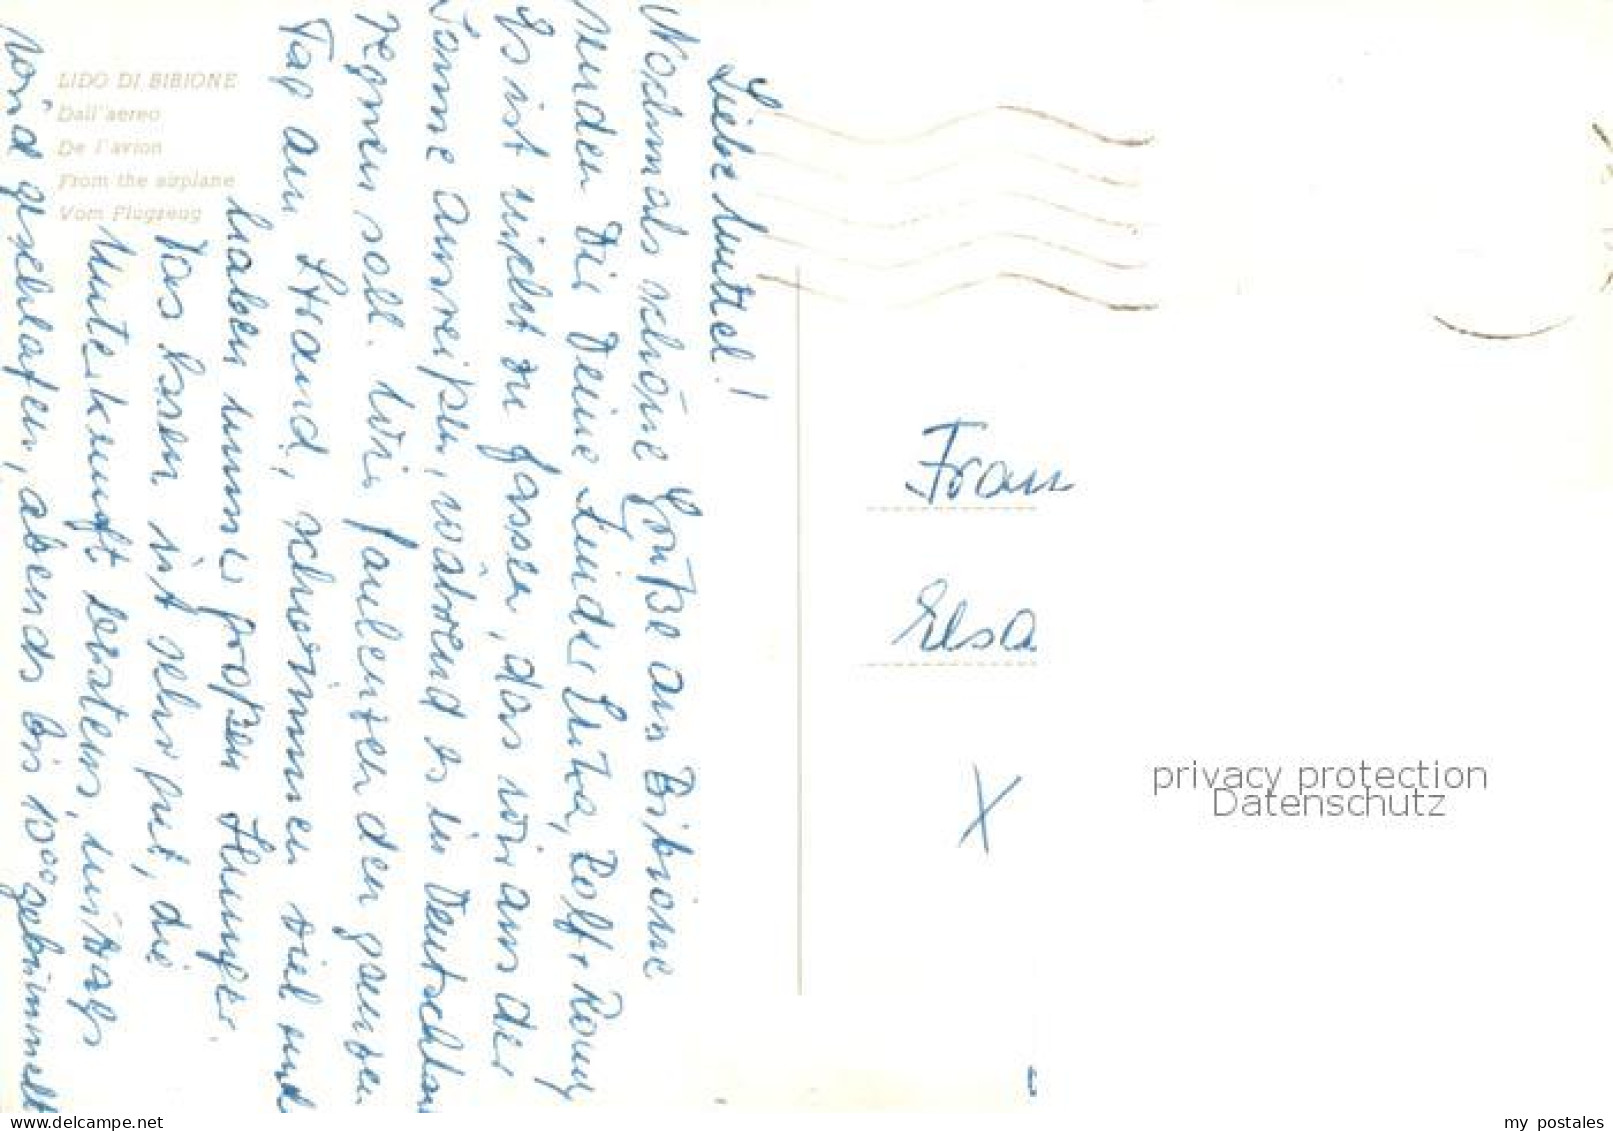 LIDO DI BIBIONE
Dall'aereo
De l'avion
From the airplane
Vom Flugzeug
Liebe Muttel!
Nochmals schöne Grüße aus Bibione
senden Dir Deine Kinder Luba, Rolf + Romy
Es ist nicht zu fassen, das wir aus der
Sonne ausreißen, während es in Deutschland
regnen soll. Wir faulenzen den ganzen
Tag am Strand, schwimmen viel und
haben immer großen Hunger.
Das Essen ist sehr gut, die
Unterkunft bestens, mittags
wird geschlafen, abends bis 10°° gebummelt
Frau
Elsa
privacy protection
Datenschutz
www.delcampe.net
my_postales